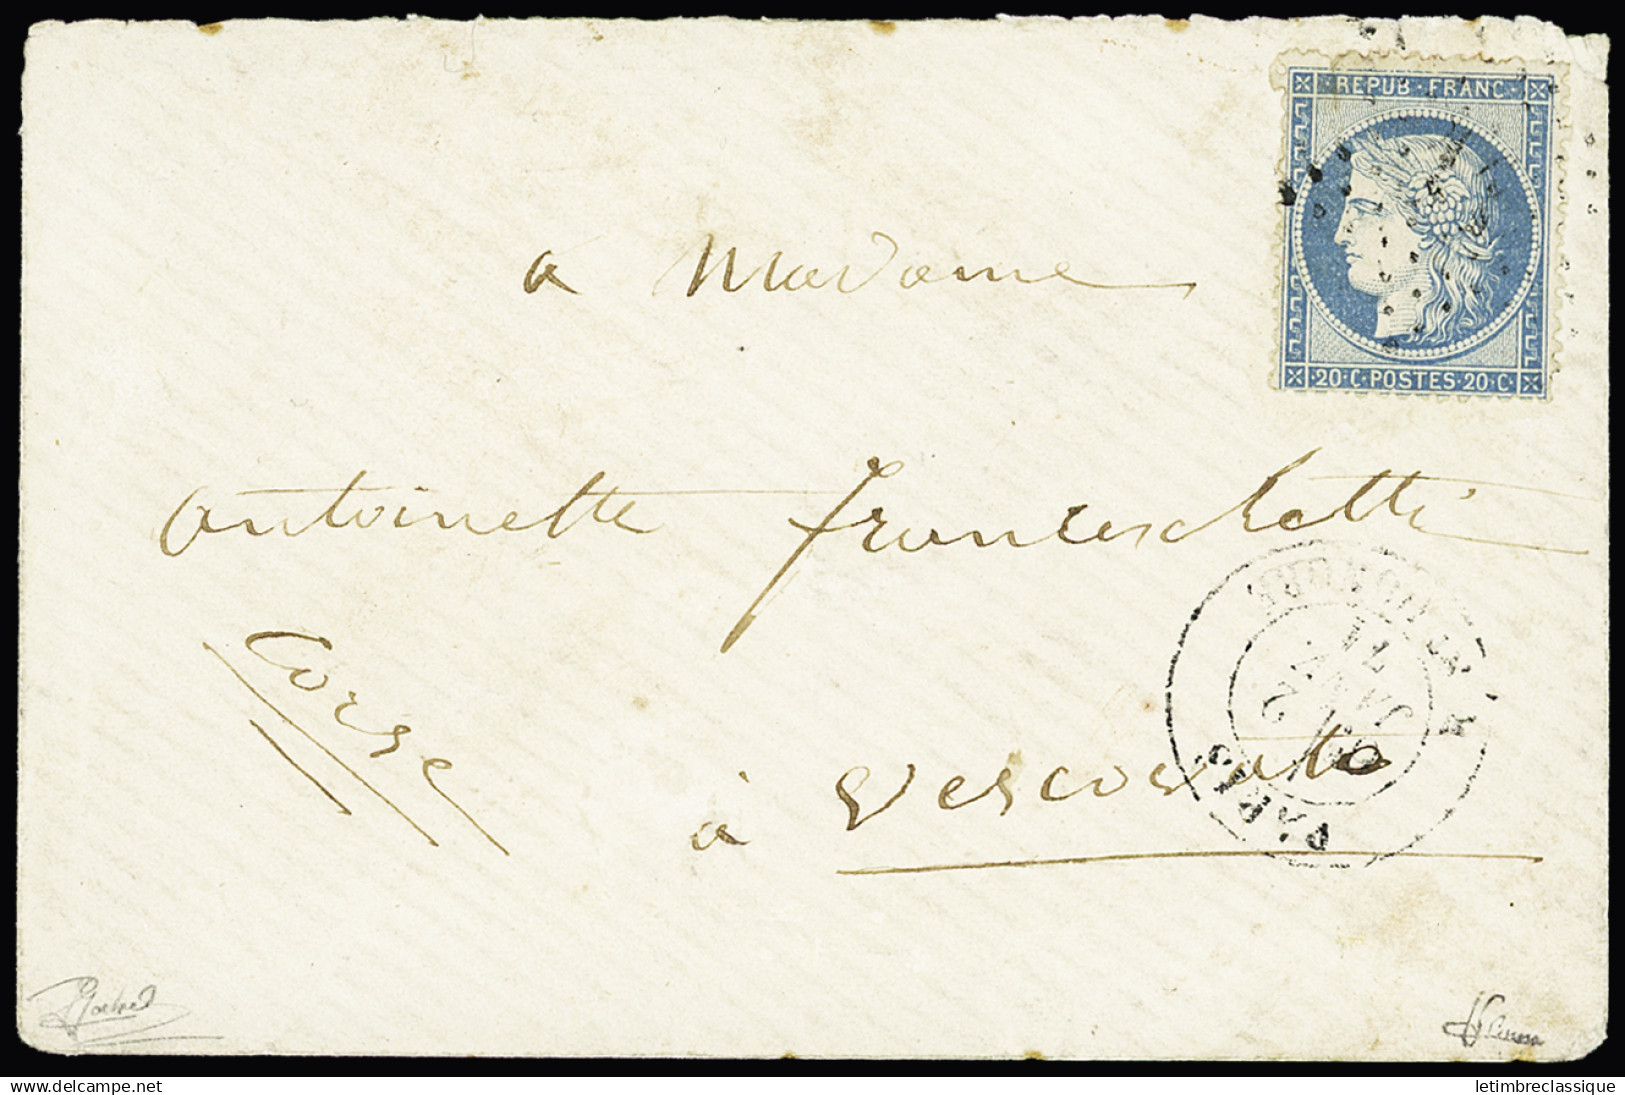 REPUB · FRANC ·
20 · C · POSTES · 20 · C
a Madame
antoinette franceschetti
Corse
à Vescovato
PARIS
JANV.
71
www.delcampe.net
letimbreclassique